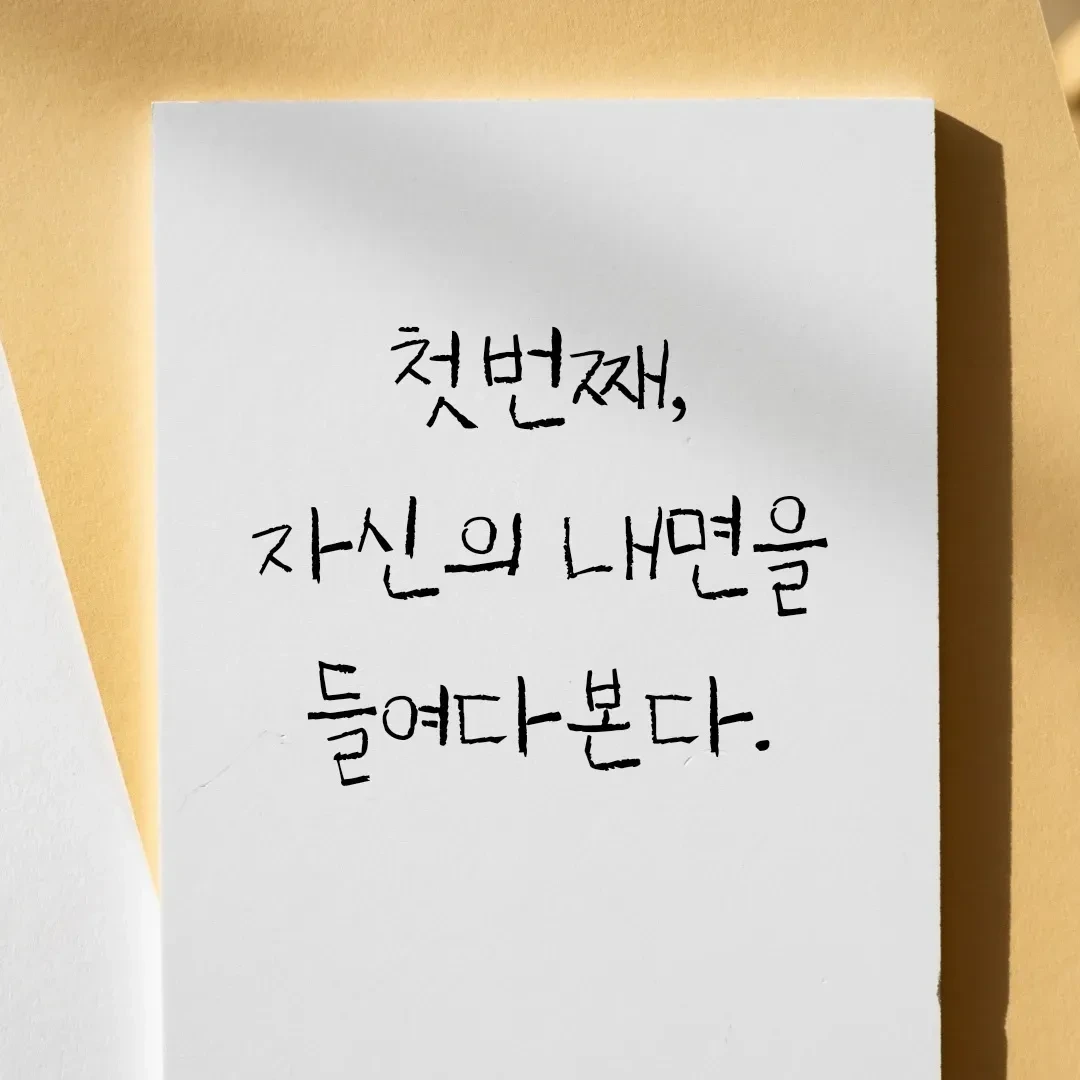 첫번째,
자신의 내면을
들여다본다.